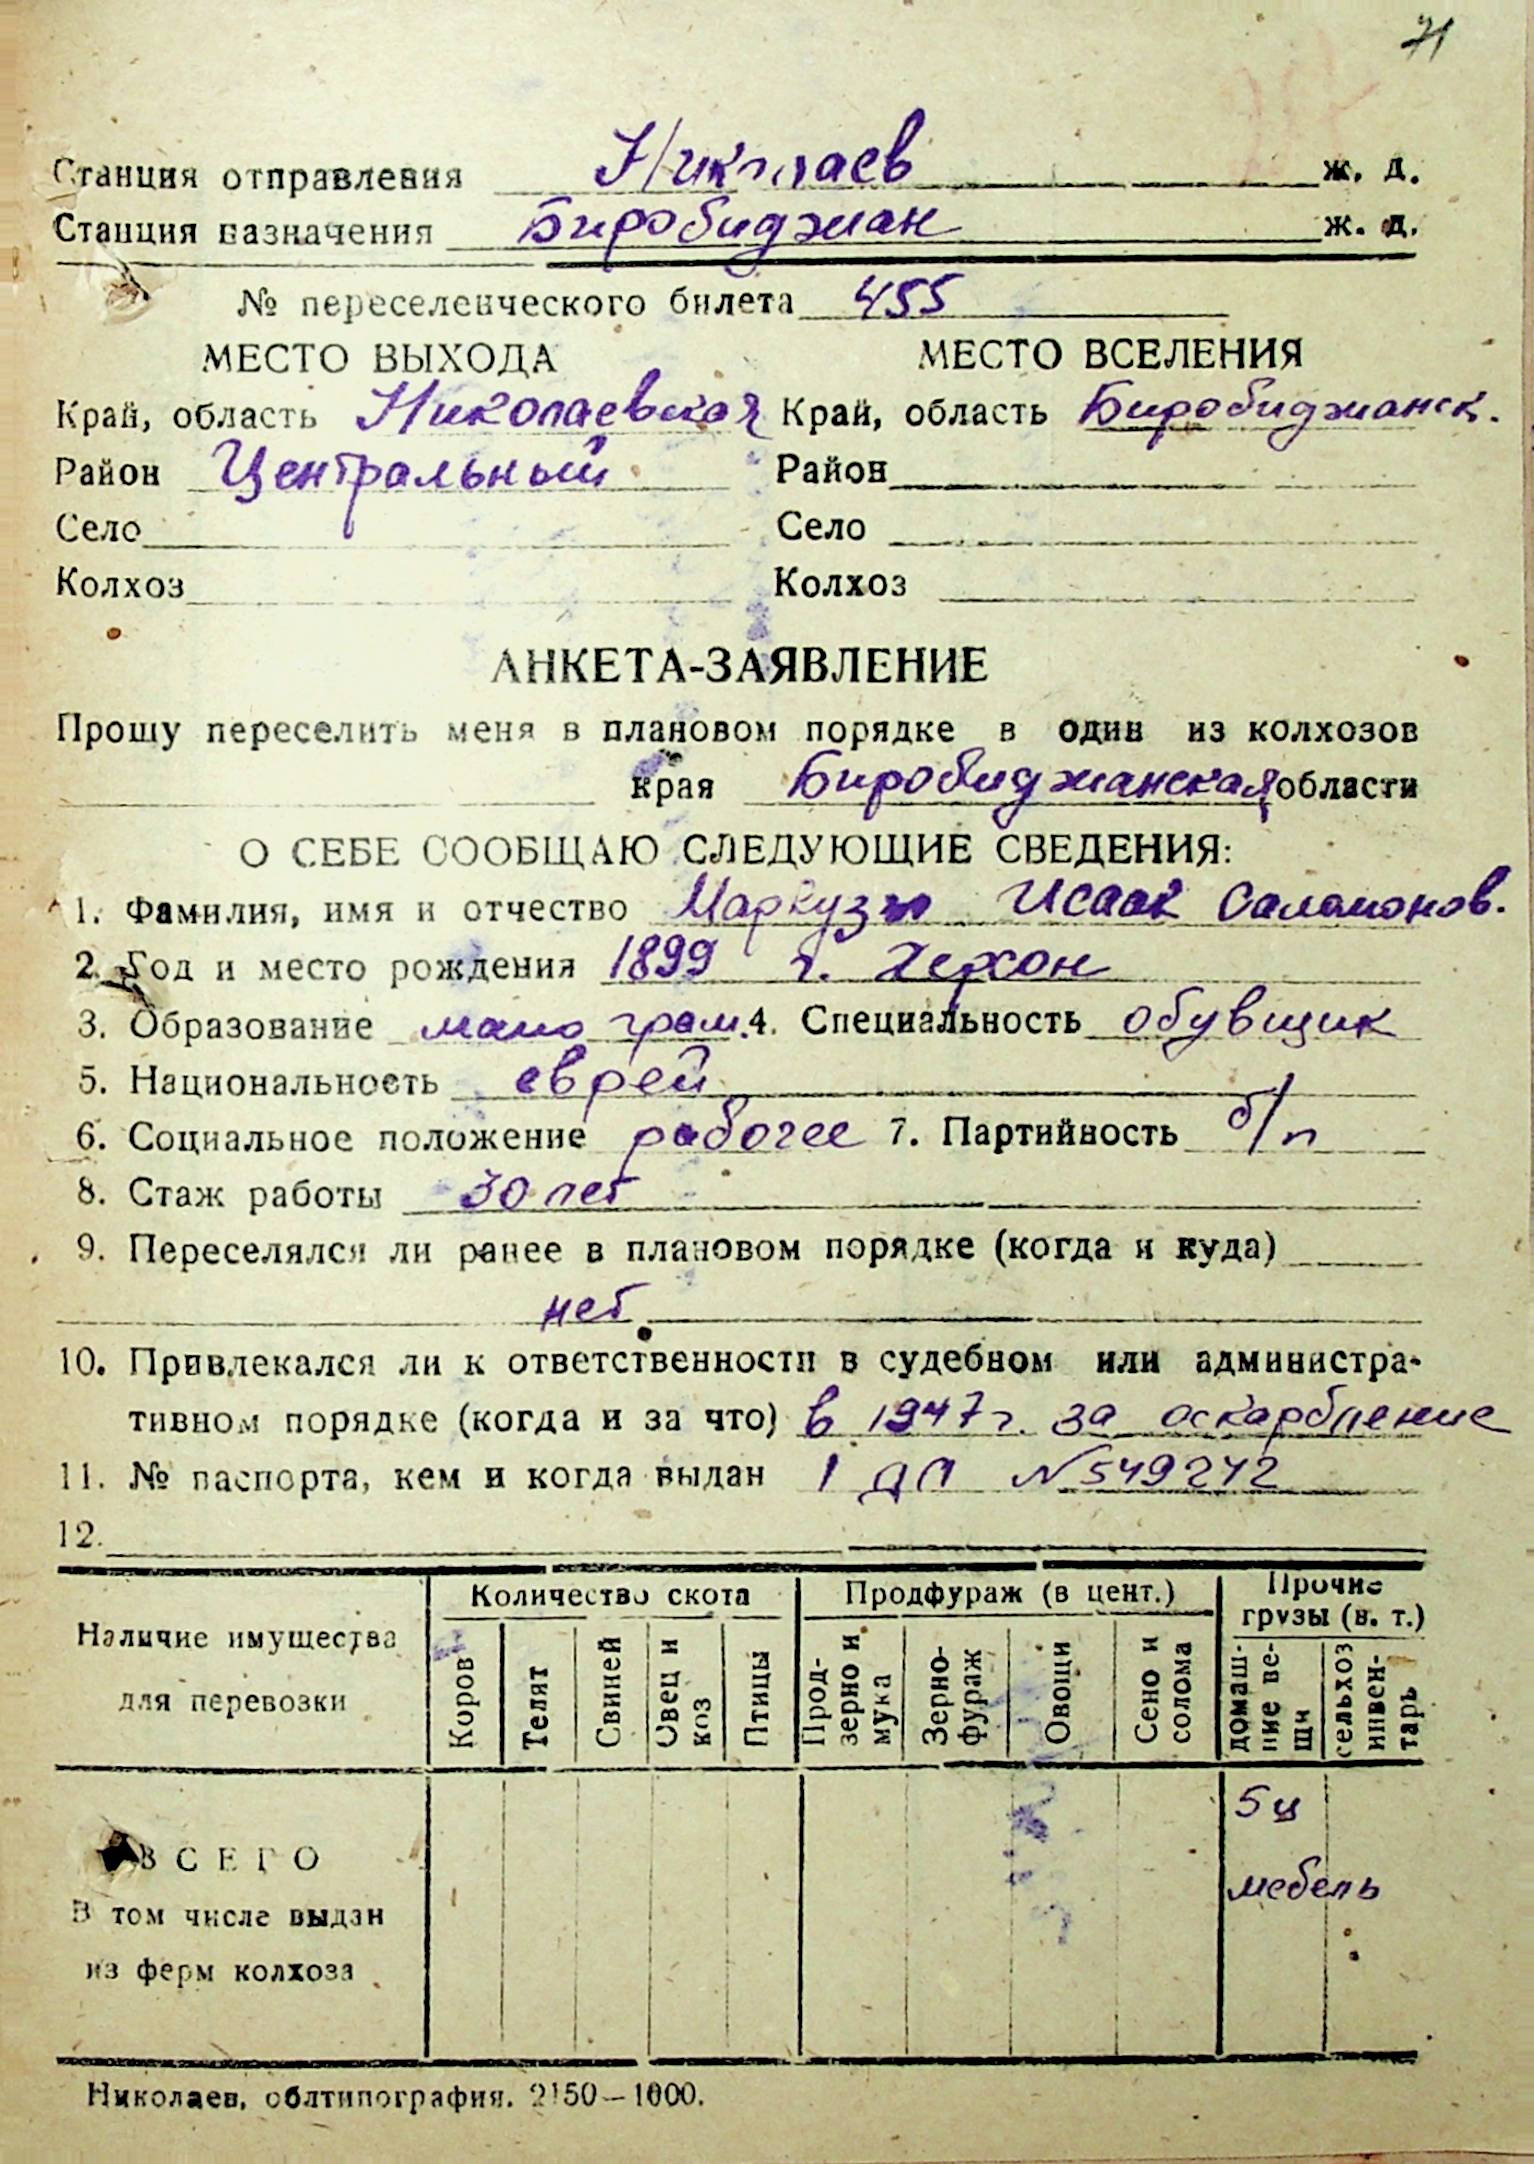 71
Станция отправления Николаев ж. д.
Станция назначения Биробиджан ж. д.
№ переселенческого билета 455
МЕСТО ВЫХОДА МЕСТО ВСЕЛЕНИЯ
Край, область Николаевская Край, область Биробиджанск.
Район Центральный Район
Село Село
Колхоз Колхоз
АНКЕТА-ЗАЯВЛЕНИЕ
Прошу переселить меня в плановом порядке в один из колхозов
края Биробиджанская области
О СЕБЕ СООБЩАЮ СЛЕДУЮЩИЕ СВЕДЕНИЯ:
1. Фамилия, имя и отчество Исаак Саломонов.
2. Год и место рождения 1899 г. Херсон
3. Образование мало грам. 4. Специальность обувщик
5. Национальность еврей
6. Социальное положение рабочее 7. Партийность б/п
8. Стаж работы 30 лет
9. Переселялся ли ранее в плановом порядке (когда и куда)
нет
10. Привлекался ли к ответственности в судебном или администра-
тивном порядке (когда и за что) в 1947 г. за оскарбление
11. № паспорта, кем и когда выдан 1 ДМ N 549242
12.
Наличие имущества для перевозки Количество скота Продфураж (в цент.) Прочие грузы (в. т.)
Коров Телят Свиней Овец и коз Птицы Прод-зерно и мука Зерно-фураж Овощи Сено и солома домаш-ние ве-щи сельхоз инвен-тарь
5 ц
ВСЕГО мебель
В том числе выдан
из ферм колхоза
Николаев, облтипография. 2150—1000.